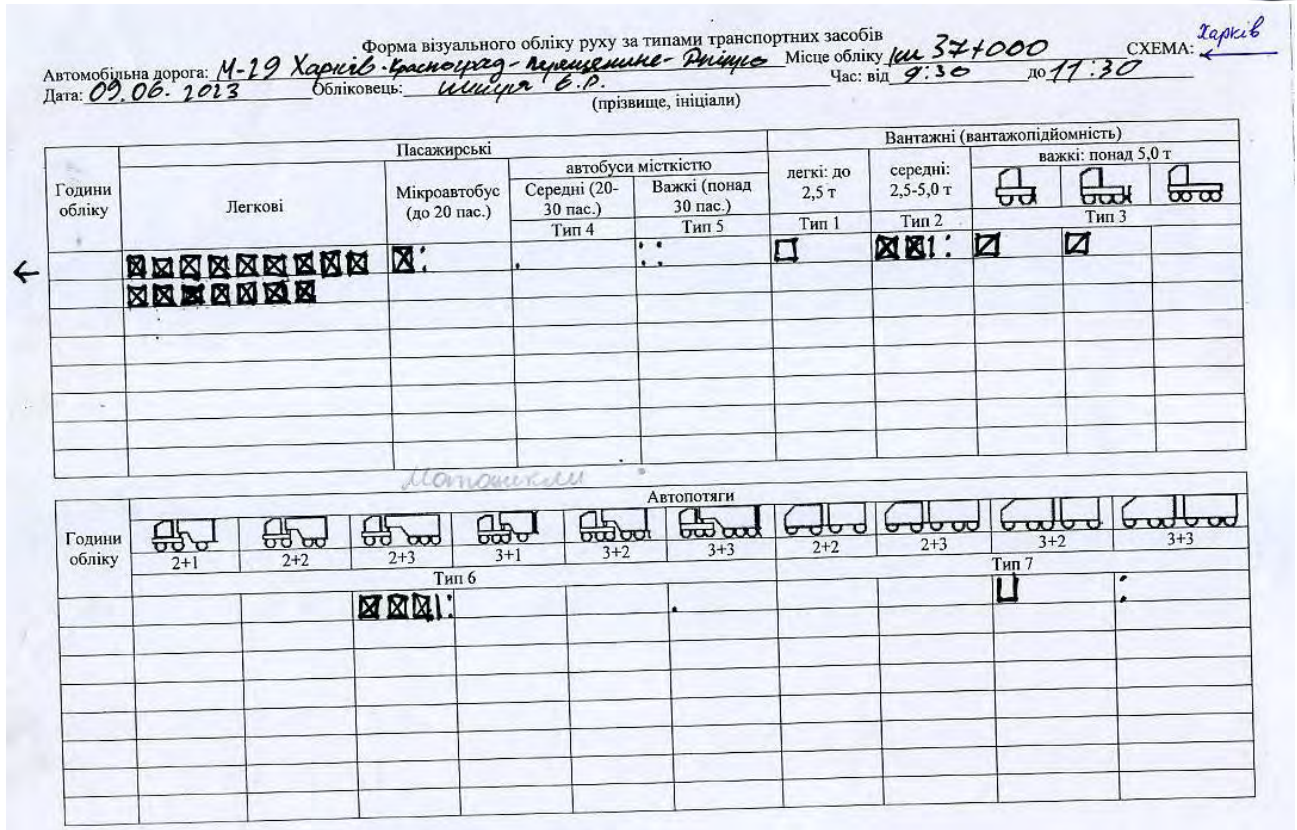 Форма візуального обліку руху за типами транспортних засобів
Харків
Автомобільна дорога: М-29 Харків-Красноград-Перещепине-Дніпро Місце обліку км 37+000 СХЕМА: ←
Дата: 09.06.2023 Обліковець: Час: від 9:30 до 11:30
(прізвище, ініціали)
Години обліку
Пасажирські
Вантажні (вантажопідйомність)
Легкові
Мікроавтобус (до 20 пас.)
автобуси місткістю
легкі: до 2,5 т
середні: 2,5-5,0 т
важкі: понад 5,0 т
Середні (20-30 пас.)
Важкі (понад 30 пас.)
Тип 4 Тип 5 Тип 1 Тип 2 Тип 3
←
Мотоцикли
Години обліку
Автопотяги
2+1 2+2 2+3 3+1 3+2 3+3 2+2 2+3 3+2 3+3
Тип 6 Тип 7